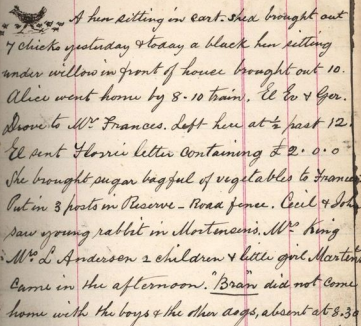 A hen sitting in cart-shed brought out
7 chicks yesterday & today a black hen sitting
under willow in front of house brought out 10.
Alice went home by 8-10 train. El Ev & Ger.
Drove to Mr Frances. Left here at ½ past 12
El sent Florrie letter containing £2.0.0
She brought sugar bagful of vegetables to Frances
Put in 3 posts in Reserve-Road fence. Cecil & John
saw young rabbit in Mortensins. Mrs King
Mrs L Andersen 2 children & little girl Martens
came in the afternoon. "Bran" did not come
home with the boys & the other dogs, absent at 8.30